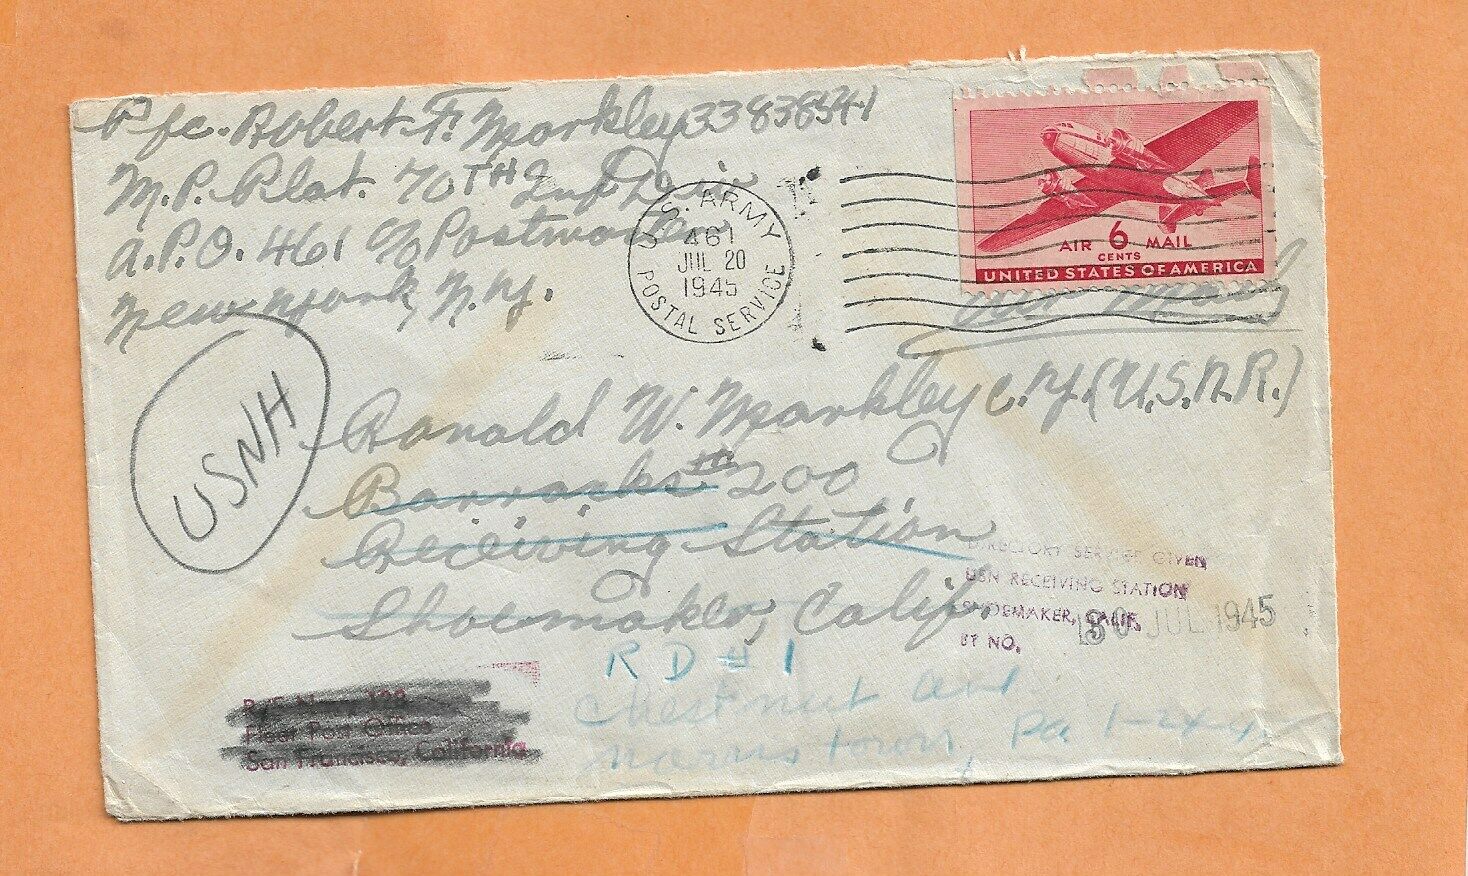 Pfc. Robert F. Markley 33838541
M.P. Plat. 70TH Inf Div
A.P.O. 461 c/o Postmaster
New York, N.Y.
U.S. ARMY
461
JUL 20
1945
POSTAL SERVICE
AIR 6 MAIL
CENTS
UNITED STATES OF AMERICA
Air Mail
USNH
Ronald W. Markley (U.S.N.R.)
Barracks # 200
Receiving Station
Shoemaker, Calif.
DIRECTORY SERVICE GIVEN
USN RECEIVING STATION
SHOEMAKER, CALIF.
BY NO.
30 JUL 1945
RD #1
Chestnut Ave
Pa
Fleet Post Office
San Francisco, California